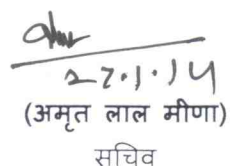 27.1.14
(अमृत लाल मीणा)
सचिव